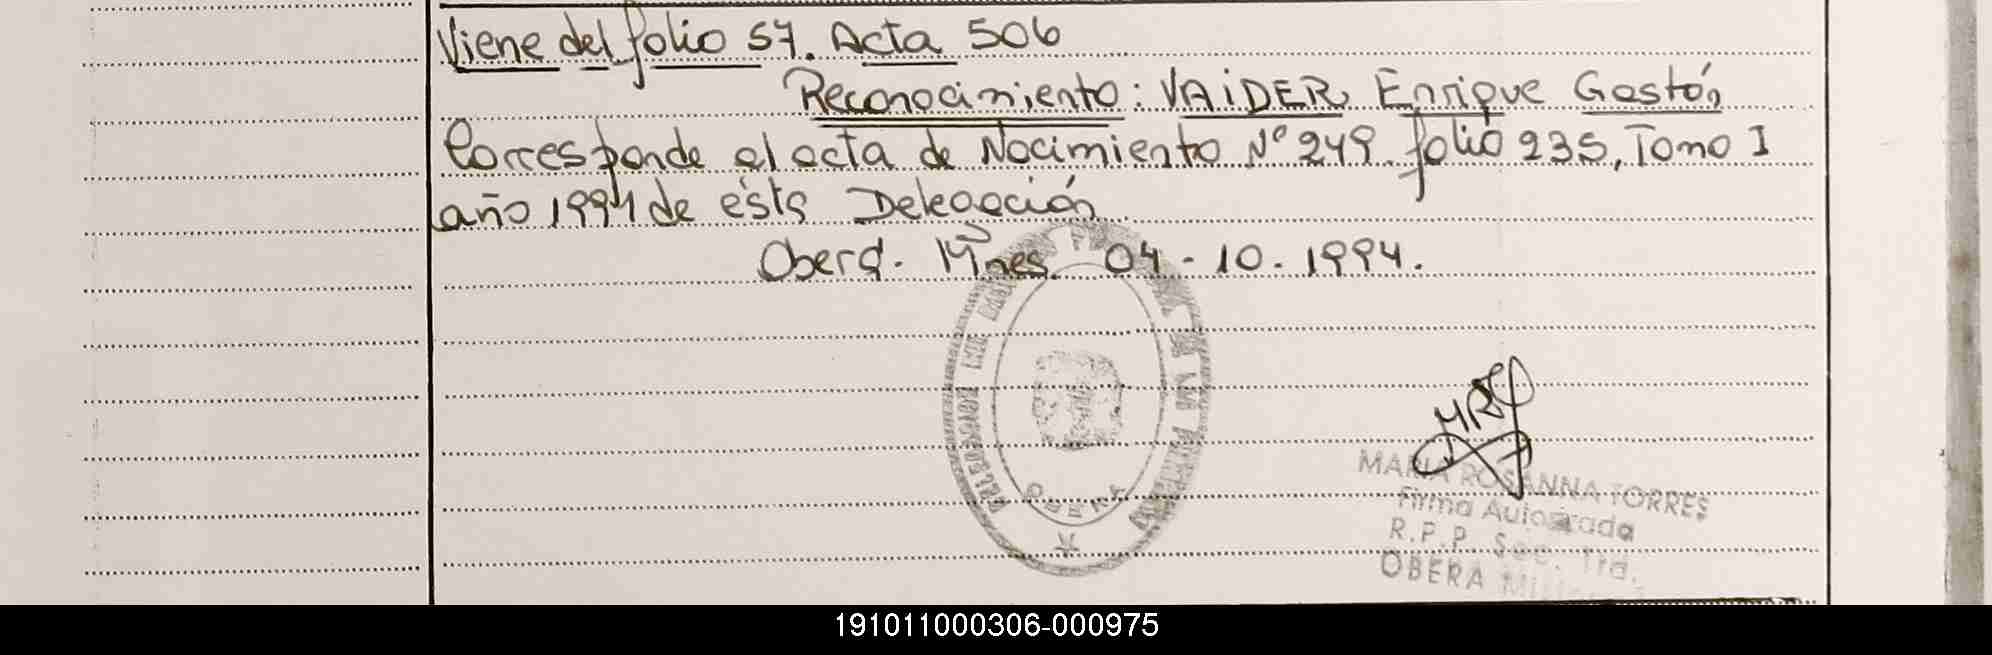 Viene del folio 57. Acta 506
Reconocimiento: VAIDER, Enrique Gastón
Corresponde al acta de Nacimiento Nº 249. folio 235, Tomo I
año 1994 de ésta Delegación
Oberá. Mnes. 04 - 10 - 1994.
OBERA
MARIA ROSANNA TORRES
Firma Autorizada
R.P.P. Sec. Trd.
OBERA
191011000306-000975